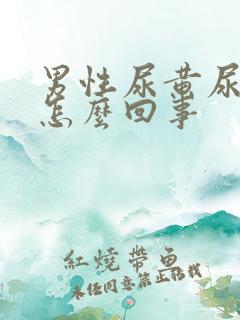 男性尿黄尿
怎麼回事
紅燒帶魚
未经同意禁止转载